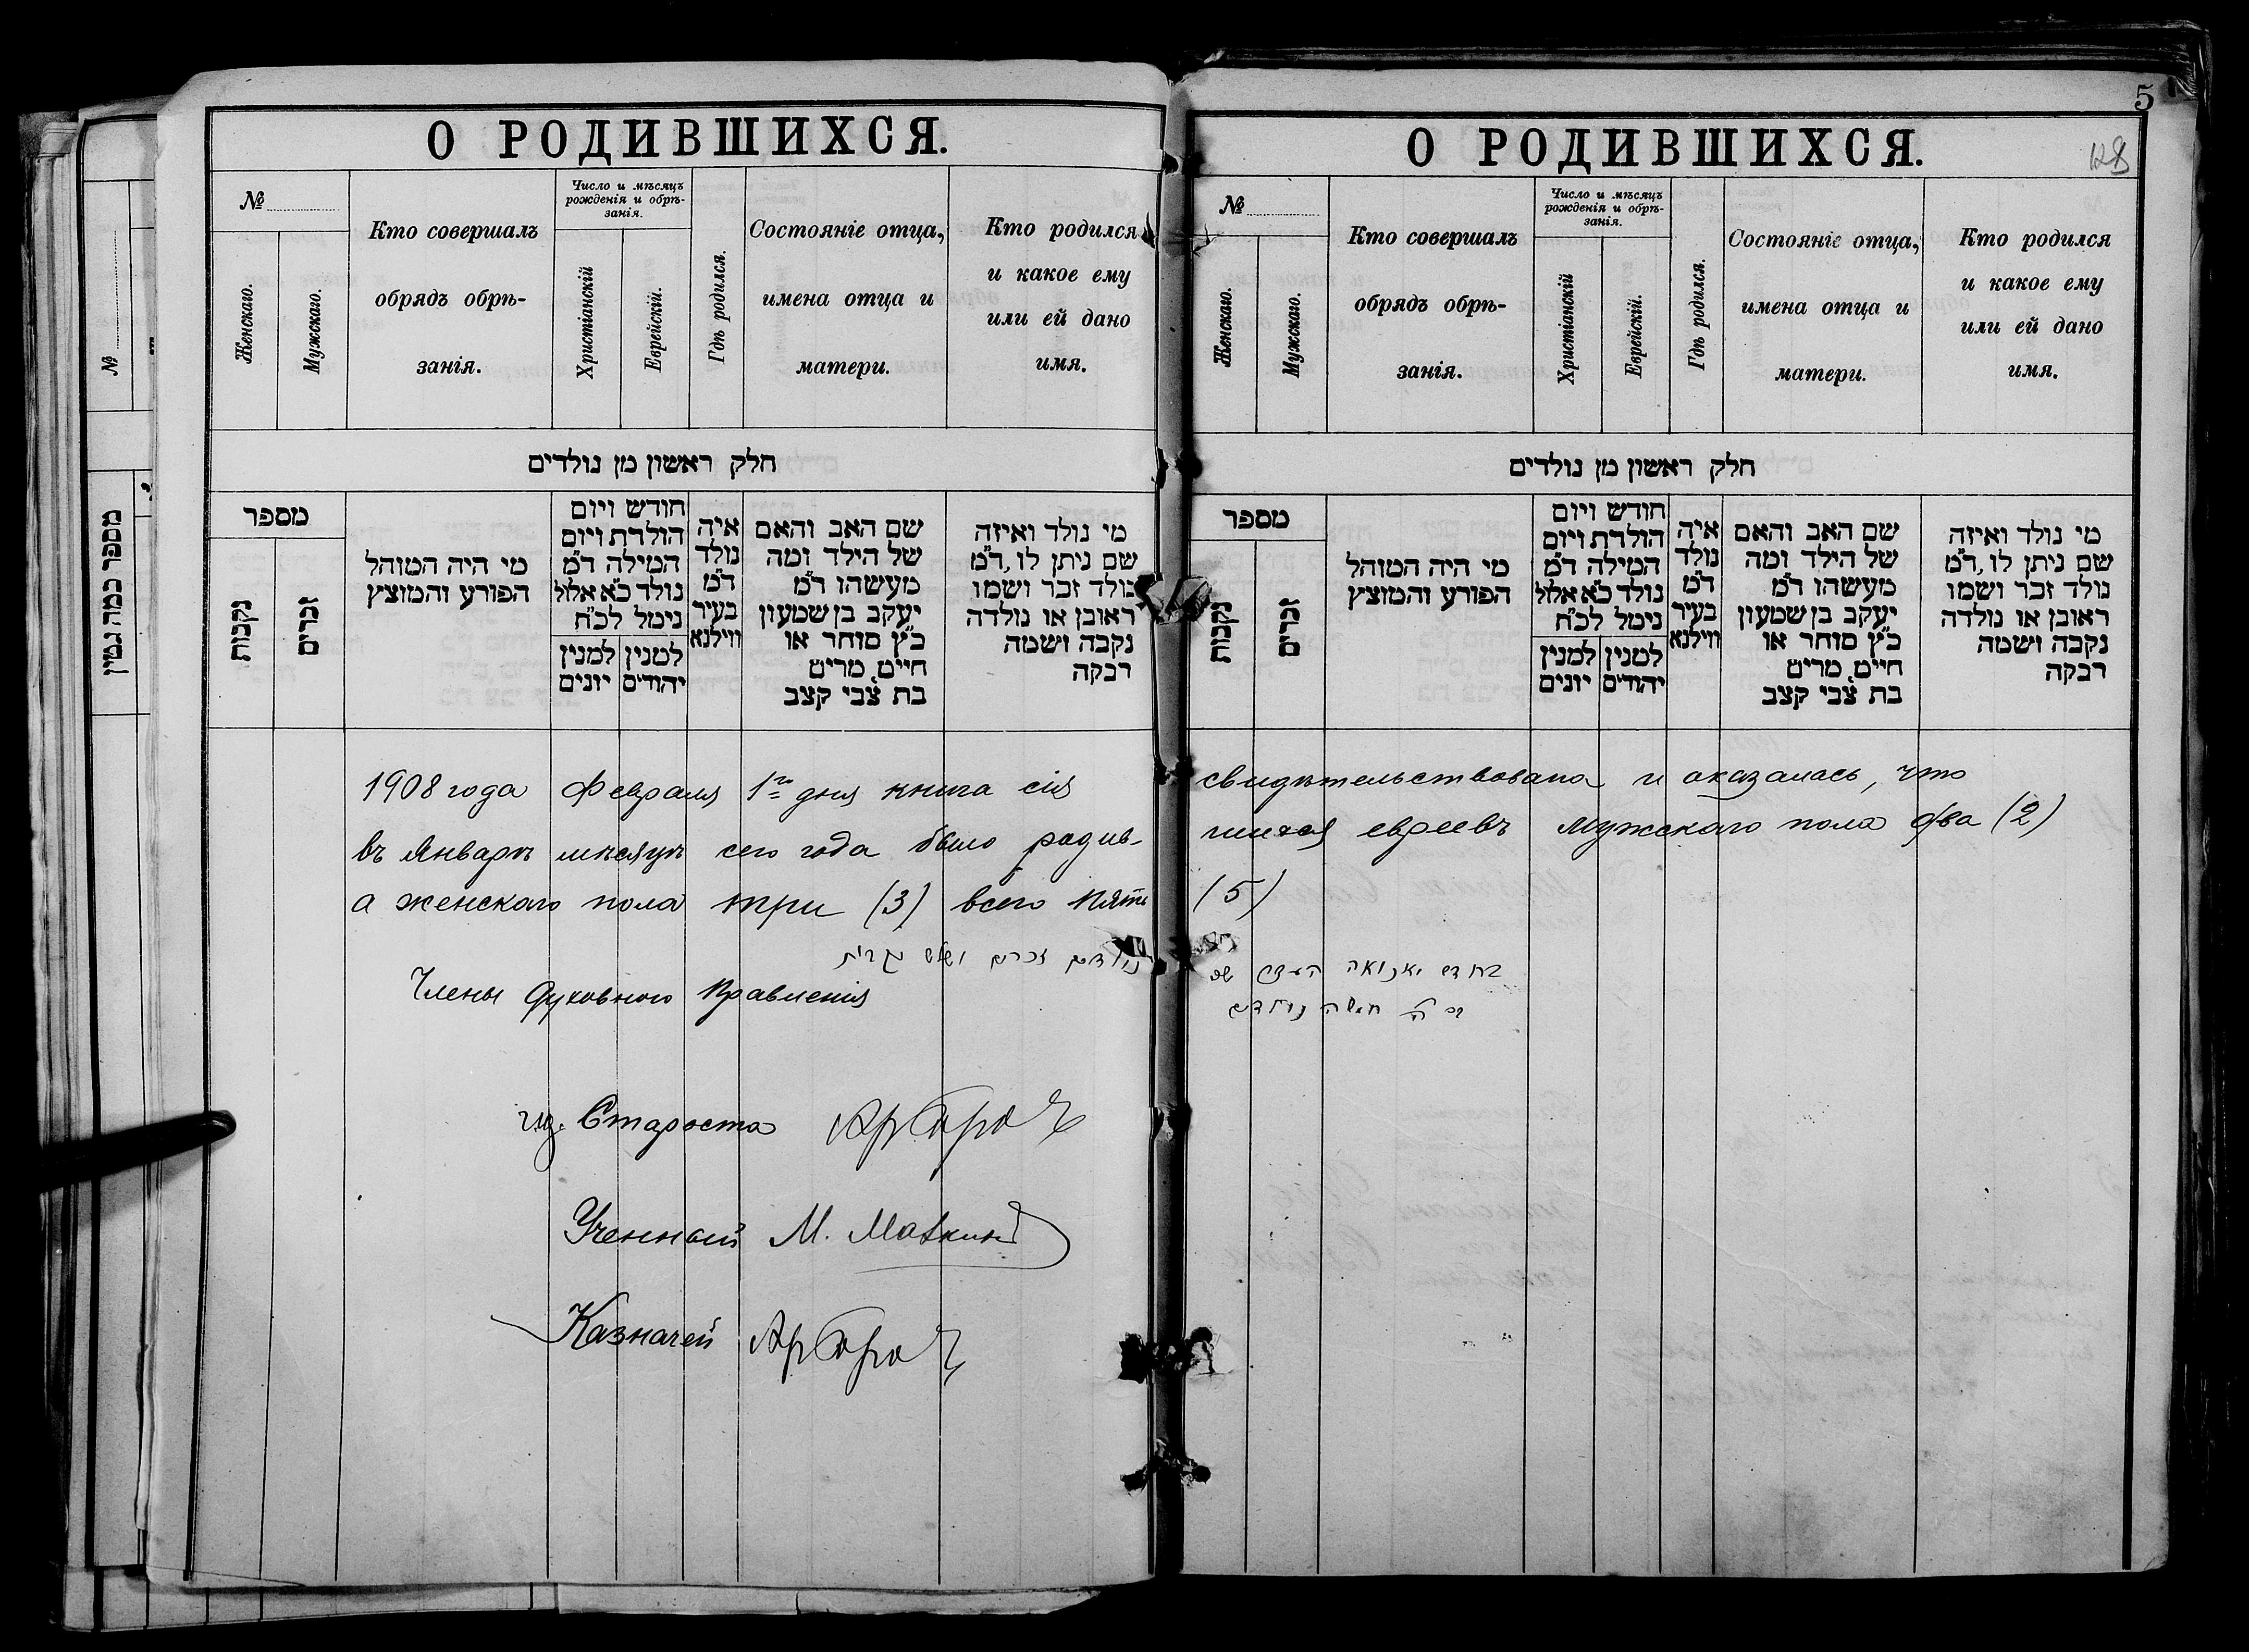 О РОДИВШИХСЯ.
№
Женскаго.
Мужскаго.
Кто совершалъ
обрядъ обрѣ-
занія.
Число и мѣсяцъ
рожденія и обрѣ-
занія.
Христіанскій
Еврейскій.
Гдѣ родился.
Состояніе отца,
имена отца и
матери.
Кто родился
и какое ему
или ей дано
имя.
חלק ראשון מן נולדים
מספר
נקבות
זכרים
מי היה המוהל
הפורע והמוצץ
חודש ויום
הולדת ויום
המילה ד״מ
נולד כ״א אלול
נימל לכ״ח
למנין
יהודים
למנין
יונים
איה
נולד
ד״מ
בעיר
ווילנא
שם האב והאם
של הילד ומה
מעשהו ד״מ
יעקב בן שמעון
כ״ץ סוחר או
חיים, מרים
בת צבי קצב
מי נולד ואיזה
שם ניתן לו, ד״מ
נולד זכר ושמו
ראובן או נולדה
נקבה ושמה
רבקה
1908 года Февраля 1го дня книга сія
въ Январѣ мѣсяцѣ сего года было родив-
а женскаго пола три (3) всего пять
Члены Духовнаго Правленія
Староста
Ученный М.
Казначей
№
מספר כמה גמין
5
128
О РОДИВШИХСЯ.
№
Женскаго.
Мужскаго.
Кто совершалъ
обрядъ обрѣ-
занія.
Число и мѣсяцъ
рожденія и обрѣ-
занія.
Христіанскій
Еврейскій.
Гдѣ родился.
Состояніе отца,
имена отца и
матери.
Кто родился
и какое ему
или ей дано
имя.
חלק ראשון מן נולדים
מספר
נקבות
זכרים
מי היה המוהל
הפורע והמוצץ
חודש ויום
הולדת ויום
המילה ד״מ
נולד כ״א אלול
נימל לכ״ח
למנין
יהודים
למנין
יונים
איה
נולד
ד״מ
בעיר
ווילנא
שם האב והאם
של הילד ומה
מעשהו ד״מ
יעקב בן שמעון
כ״ץ סוחר או
חיים, מרים
בת צבי קצב
מי נולד ואיזה
שם ניתן לו, ד״מ
נולד זכר ושמו
ראובן או נולדה
נקבה ושמה
רבקה
свидѣтельствована и оказалась, что
шихся евреевъ мужскаго пола два (2)
(5)